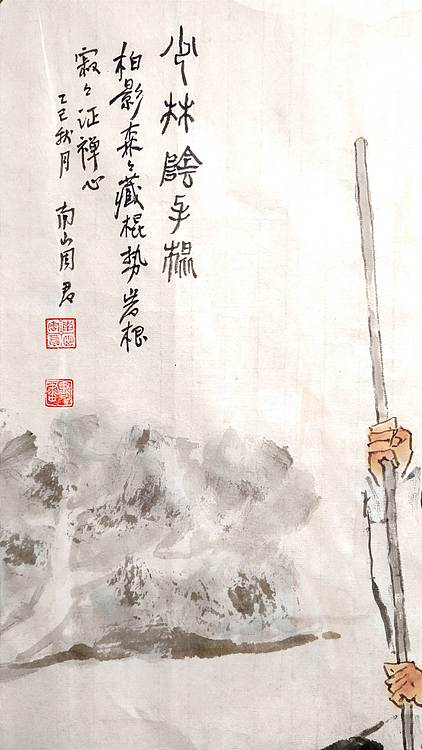 少林陰手棍
柏影森々藏棍势岩根
寂々证禅心
乙巳秋月 南山周君